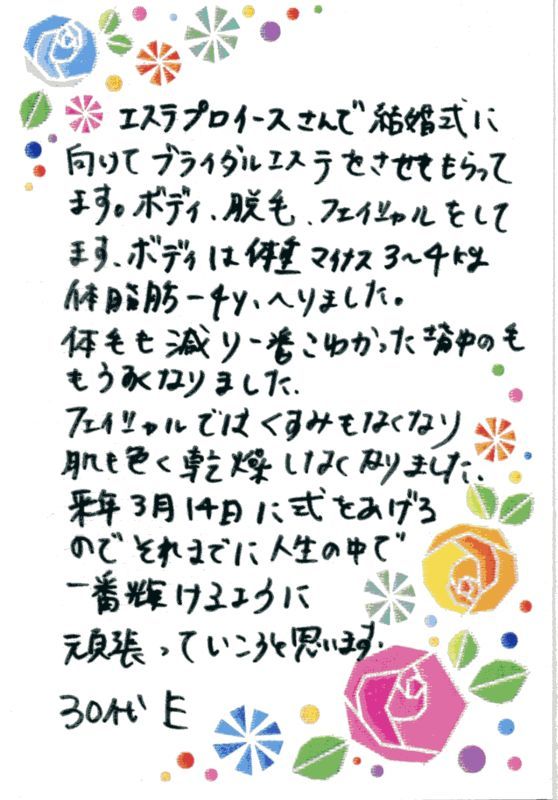 エステプロイースさんで結婚式に
向けてブライダルエステをさせてもらって
ます。ボディ、脱毛、フェイシャルをして
ます、ボディは体重マイナス3〜4kg
体脂肪-4%、へりました。
体毛も減り一番こわかった背中の毛
もうすくなりました、
フェイシャルではくすみもなくなり
肌も色く乾燥しなくなりました、
来年3月14日に式をあげる
のでそれまでに人生の中で
一番輝けるように
頑張っていこうと思います、
30代 E